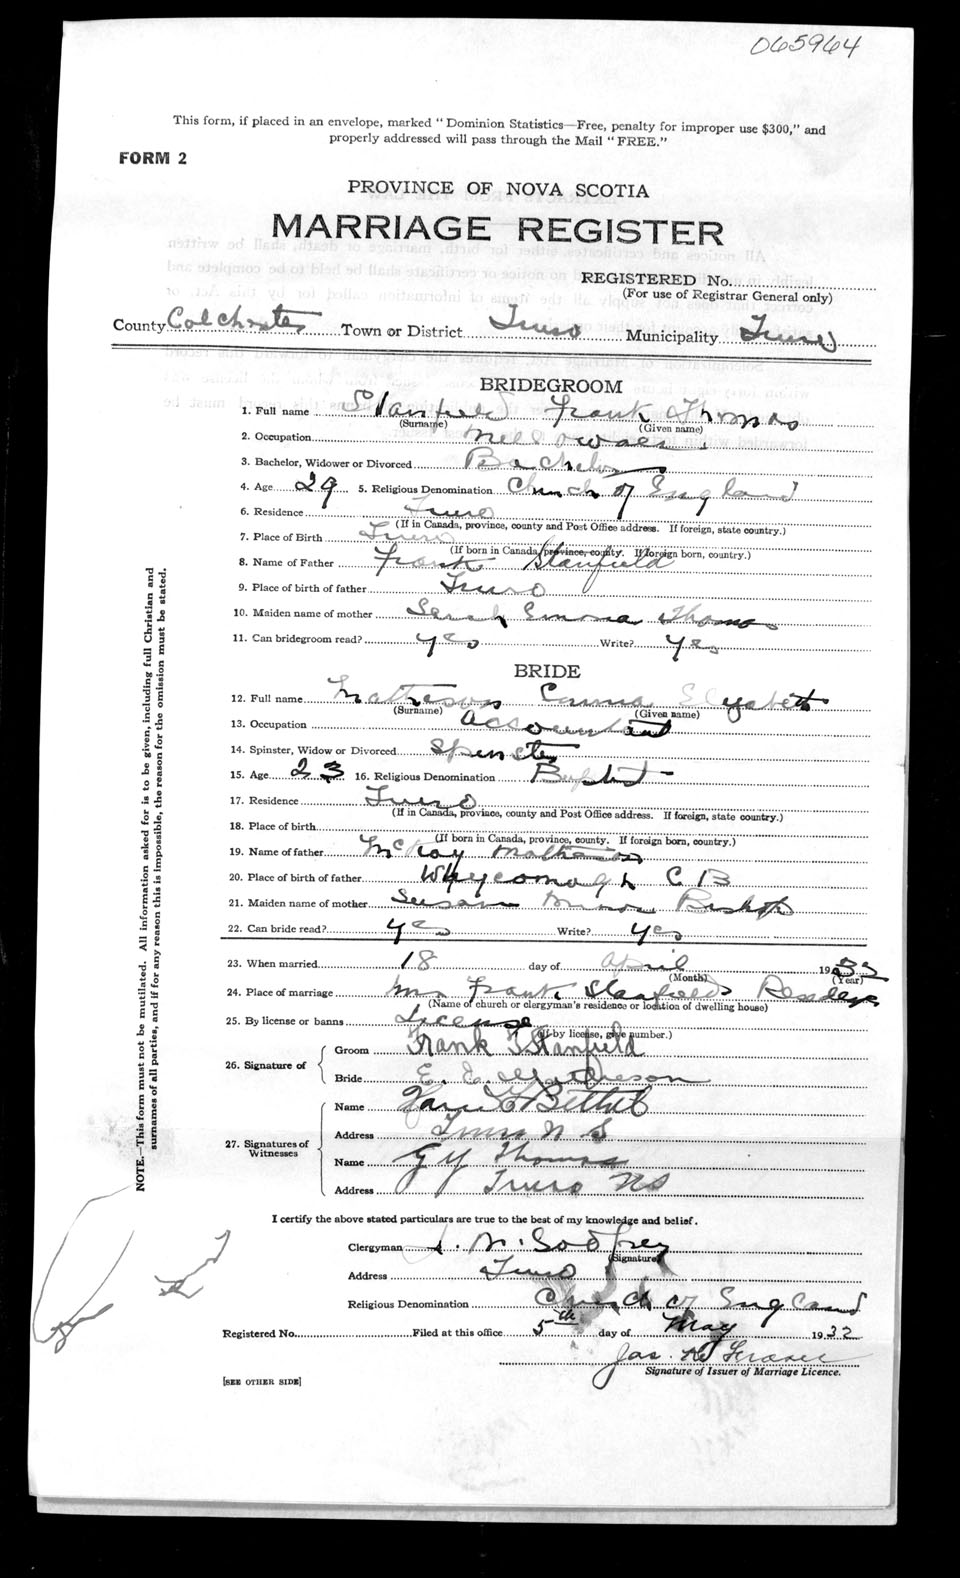 065964
This form, if placed in an envelope, marked "Dominion Statistics—Free, penalty for improper use $300," and
properly addressed will pass through the Mail "FREE."
FORM 2
PROVINCE OF NOVA SCOTIA
MARRIAGE REGISTER
REGISTERED No.
(For use of Registrar General only)
County Colchester Town or District Truro Municipality Truro
BRIDEGROOM
1. Full name Stanfield Frank Thomas
(Surname) (Given name)
2. Occupation Mill owner
3. Bachelor, Widower or Divorced Bachelor
4. Age 29 5. Religious Denomination Church of England
6. Residence Truro
(If in Canada, province, county and Post Office address. If foreign, state country.)
7. Place of Birth Truro
(If born in Canada, province, county. If foreign born, country.)
8. Name of Father Frank Stanfield
9. Place of birth of father Truro
10. Maiden name of mother Sarah Emma Thomas
11. Can bridegroom read? yes Write? yes
BRIDE
12. Full name Matheson Emma Elizabeth
(Surname) (Given name)
13. Occupation Accountant
14. Spinster, Widow or Divorced Spinster
15. Age 23 16. Religious Denomination Baptist
17. Residence Truro
(If in Canada, province, county and Post Office address. If foreign, state country.)
18. Place of birth
(If born in Canada, province, county. If foreign born, country.)
19. Name of father McKay Matheson
20. Place of birth of father Whycomagh C B
21. Maiden name of mother Susan Bishop
22. Can bride read? yes Write? yes
23. When married 18 day of April 1932
(Month) (Year)
24. Place of marriage Mrs Frank Stanfields Residence
(Name of church or clergyman's residence or location of dwelling house)
25. By license or banns License
(If by license, give number.)
26. Signature of Groom Frank T Stanfield
Bride E. E. Matheson
27. Signatures of Witnesses
Name Bethel
Address Truro N S
Name G Y Thomas
Address Truro NS
I certify the above stated particulars are true to the best of my knowledge and belief.
Clergyman J. W. Godfrey
(Signature)
Address Truro
Religious Denomination Church of England
Registered No. Filed at this office 5th day of May 1932
Jas. Fraser
Signature of Issuer of Marriage Licence.
[SEE OTHER SIDE]
NOTE.—This form must not be mutilated. All information asked for is to be given, including full Christian and
surnames of all parties, and if for any reason this is impossible, the reason for the omission must be stated.